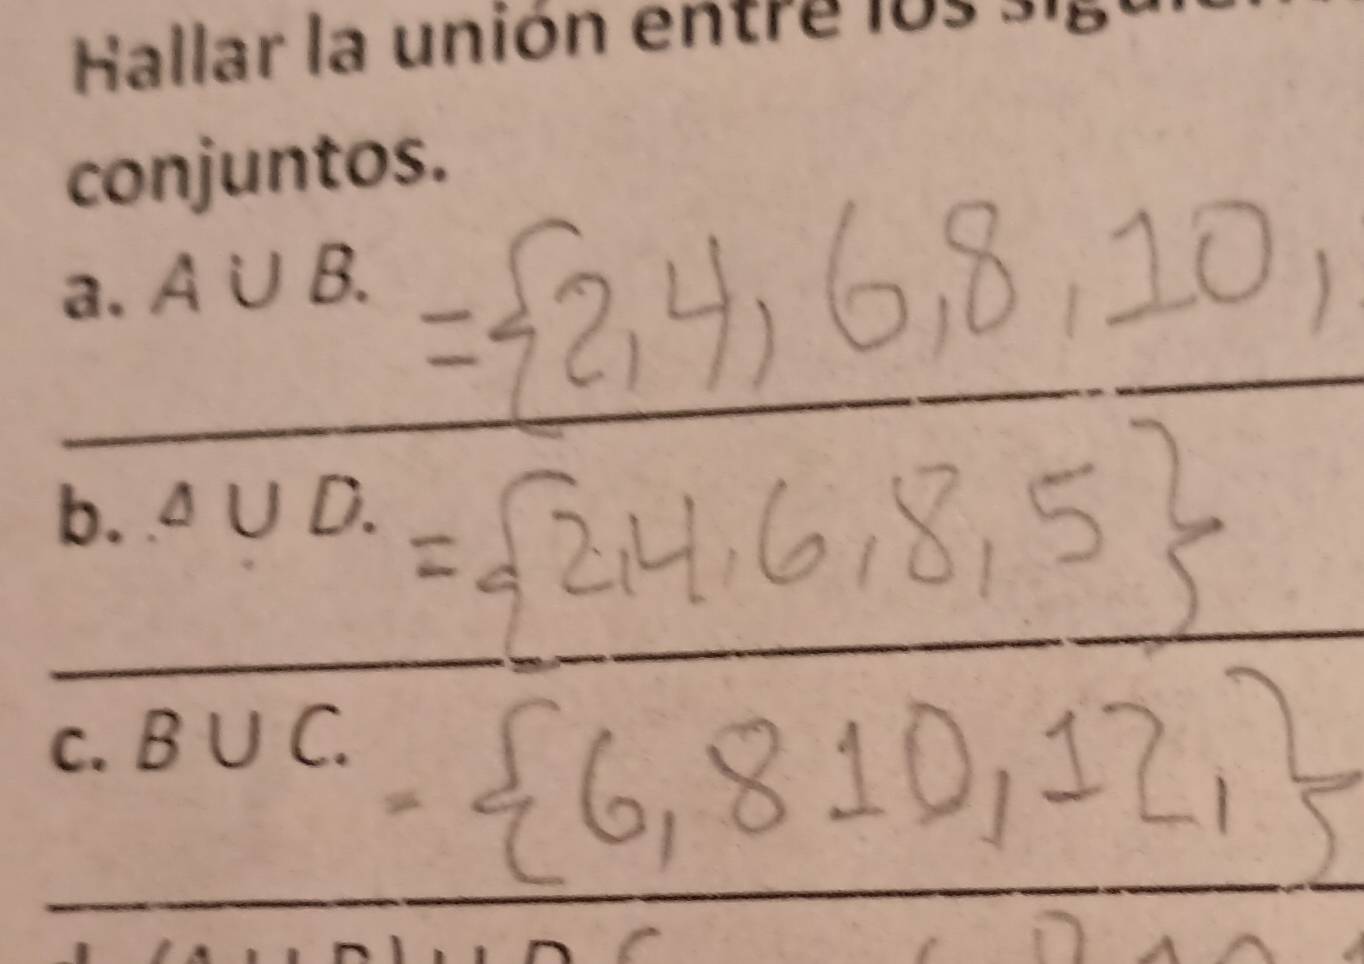 Hallar la unión entre los
conjuntos.
a. A U B. = {2, 4, 6, 8, 10,
b. A U D. = {2, 4, 6, 8, 5}
c. B U C. - {6, 8 10, 12, }